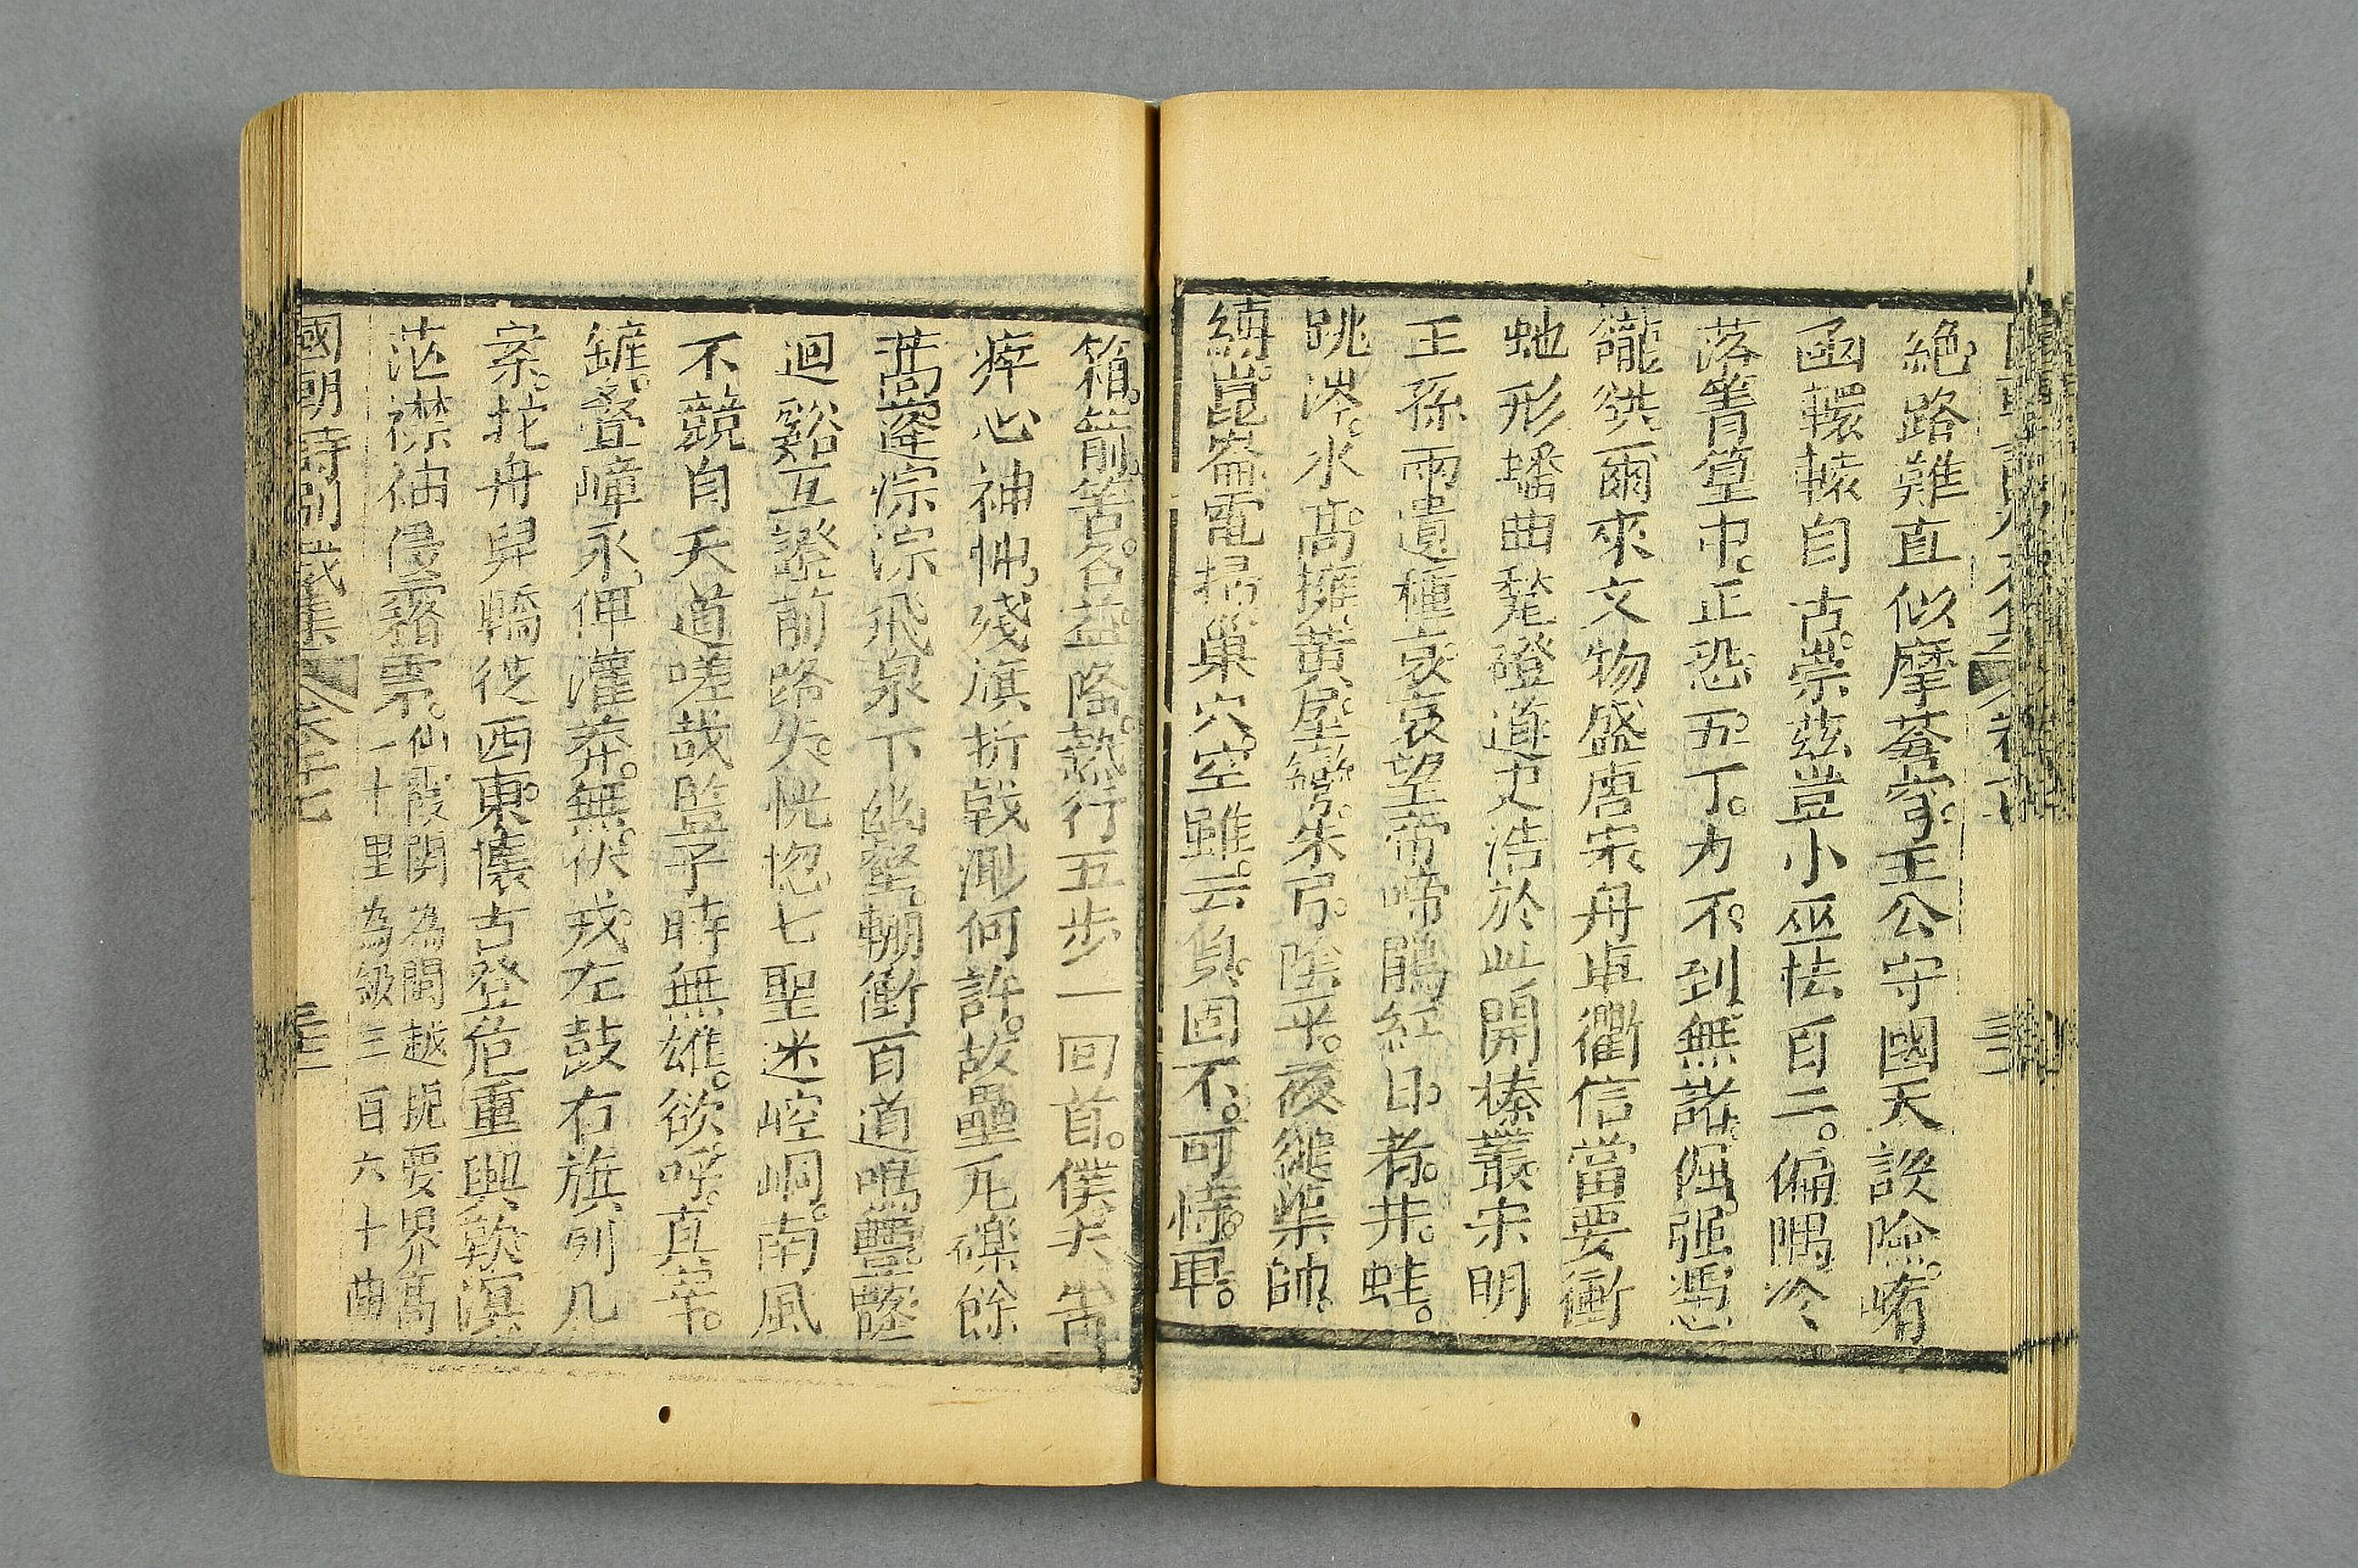 絶路難直似摩蒼穹王公守國天設險崤
函轘轅自古崇茲豈小巫怯百二偏隅冷
落箐篁中正恐五丁力不到無諾倔强馮
籠㺜爾來文物盛唐宋舟車衢信當要衝
虵形墦曲甃磴道史浩於此開榛叢宋明
王孫雨遺種哀哀望帝啼鵑紅日者井蛙
跳涔水高擁黄屋彎朱弓陰平夜縋柴帥
縛崑崙電掃巢穴空雖云負固不可恃軍
箱箭筈名益隆熱行五步一回首僕夫耑
瘁心神忡殘旗折戟渺何許故壘瓦礫餘
蒿蓬淙淙飛泉下幽壑輣衝百道鳴豐隆
迴谿互證前路失恍惚七聖迷崆峒南風
不競自天道嗟哉監子時無雄欲呼真宰
鏟疊嶂永俾灌莽無伏戎左鼓右旗列几
案柁舟舁轎從西東懷古登危重興歎溟
茫襟袖侵霧雺仙霞関為閩越扼要界髙
一十里為級三百六十曲
國朝詩別裁集 卷十七